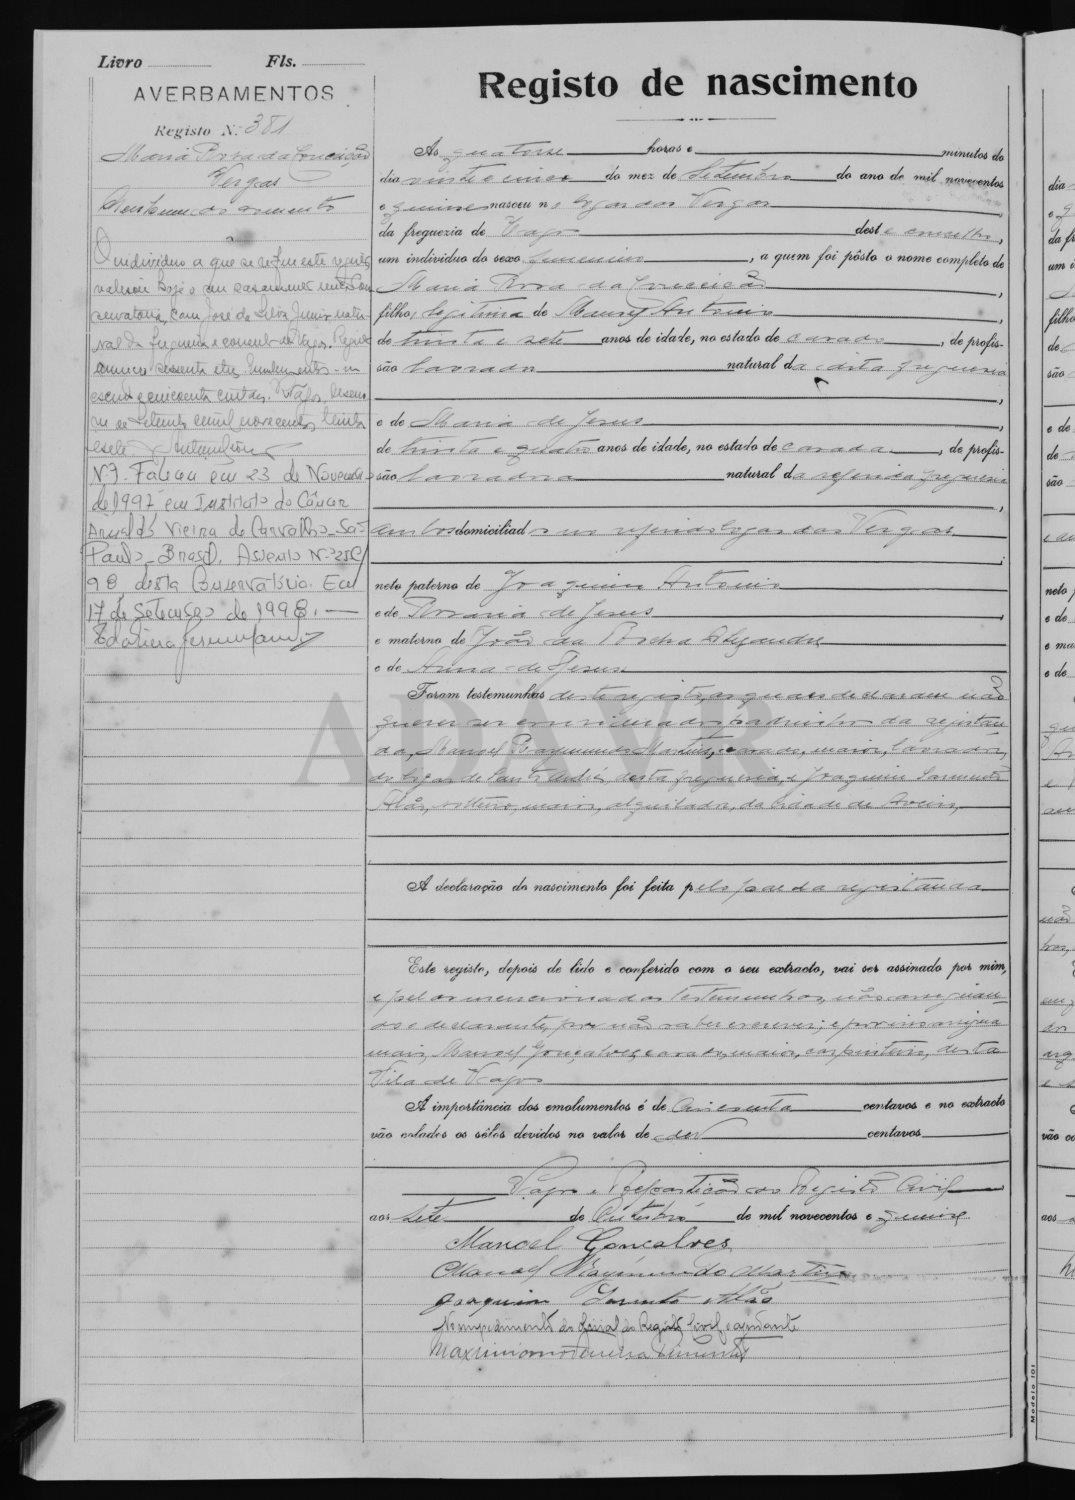 Livro Fls.
AVERBAMENTOS
Registo N.º 381
Maria Rosa da Conceição
Vergas
O individuo a que se refere este registo
realisou hoje o seu casamento nesta Con
servatoria, com José da Silva Junior, natu-
ral da freguesia e concelho de Vagos. Registo
numero sessenta e tres. Emolumentos - um
escudo e cincoenta centavos. Vagos,
de Setembro de mil novecentos e trinta
e sete
Nº 7. Faleceu em 23 de Novembro
de 1997 em Instituto do Câncer
Arnaldo Vieira de Carvalho - São
Paulo - Brasil. Assento Nº
98 desta Conservatória. Em
17 de Setembro de 1998. —
Registo de nascimento
As quatorse horas e minutos do
dia vinte e cinco do mez de Setembro do ano de mil novecentos
e quinse nasceu no logar das Vergas
da freguezia de Vagos deste concelho,
um individuo do sexo femenino, a quem foi pôsto o nome completo de
Maria Rosa da Conceição,
filha legitima de Manuel Antonio
de trinta e sete anos de idade, no estado de casado, de profis-
são lavrador natural desta freguesia
e de Maria de Jesus
de trinta e quatro anos de idade, no estado de casada, de profis-
são lavradora natural da referida freguesia
ambos domiciliados no referido logar das Vergas
neto paterno de Joaquim Antonio
e de Rosaria de Jesus
e materno de João da Rocha Alexandre
e de Anna de Jesus
Foram testemunhas deste registo, as quaes declaram não
querer ser considerados padrinhos da registan-
da, Manoel Raymundo Martins, casado, maior, lavrador,
do logar de Santo André, desta freguesia, e Joaquim Sarmento
Alão, solteiro, maior, alquilador, da cidade de Aveiro,
A declaração do nascimento foi feita pelo pae da registanda
Este registo, depois de lido e conferido com o seu extracto, vai ser assinado por mim,
e pelas mencionadas testemunhas, não assignan-
do o declarante, por não saber escrever; e por isso assigna
mais, Manoel Gonçalves, casado, maior, carpinteiro, desta
Vila de Vagos
A importância dos emolumentos é de cincoenta centavos e no extracto
vão colados os sêlos devidos no valor de dez centavos
Vagos e Repartição do Registo Civil,
aos sete de Outubro de mil novecentos e quinse
Manoel Gonçalves
Manoel Raymundo Martins
Joaquim Sarmento Alão
No impedimento do oficial do Registo Civil o ajudante
ADAVR
Modelo 101